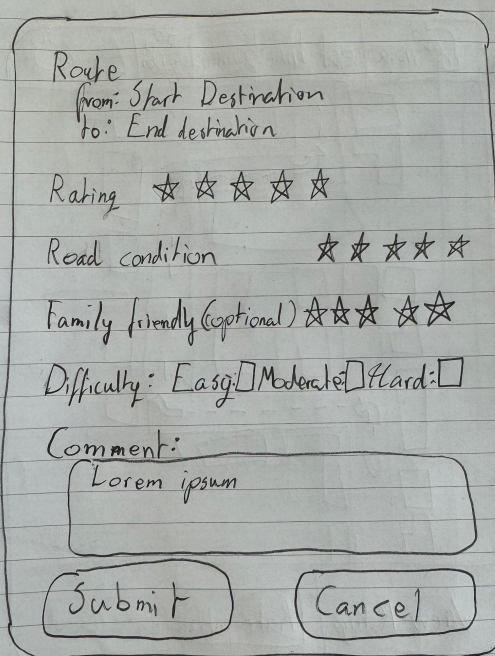 Route
from: Start Destination
to: End destination
Rating
Road condition
Family friendly (optional)
Difficulty: Easy: Moderate: Hard:
Comment:
Lorem ipsum
Submit Cancel